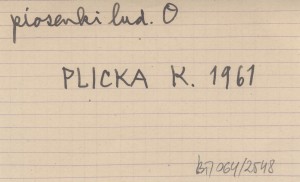 piosenki lud. O
PLICKA K. 1961
Bi7064/2548